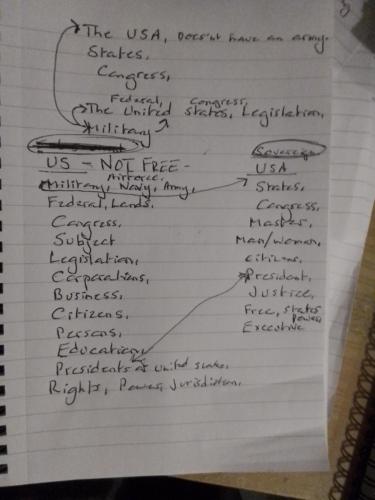 The USA, Doesn't have an army.
States,
Congress,
Federal, Congress,
The United States, Legislation,
Military
Sovereign
US - NOT FREE -
USA
Airforce,
Military, Navy, Army,
States,
Federal, Lands.
Congress,
Congress,
Master,
Subject
Man/woman,
Legislation,
citizens,
Corporations,
President,
Business,
Justice,
Citizens,
Free, States
Power,
Persons,
Executive
Education,
Presidents of United States.
Rights, Power, Jurisdiction.